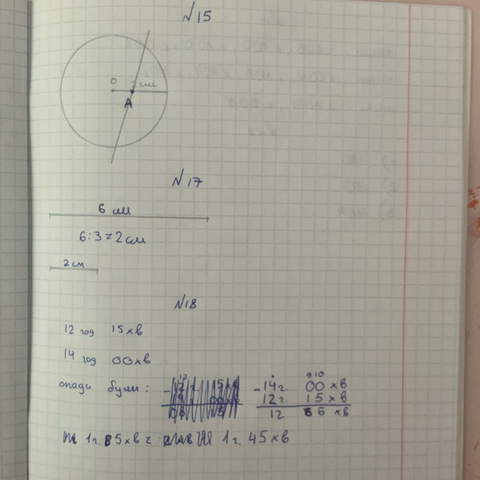 №15
O 2см
A
№17
6 см
6:3=2см
2см
№18
12 год 15хв
14 год 00хв
опади були: -14г. 00хв
12г. 15хв
12 85хв
1г. 85хв = 1г. 45хв